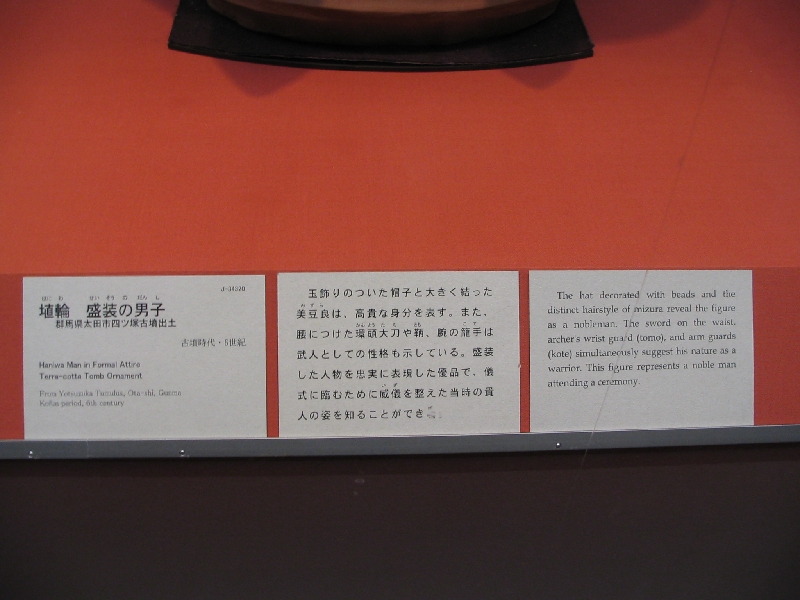 J-34820
はにわ せいそうのだんし
埴輪 盛装の男子
群馬県太田市四ツ塚古墳出土
古墳時代・6世紀
Haniwa Man in Formal Attire
Terra-cotta Tomb Ornament
From Yotsuzuka Tumulus, Ota-shi, Gunma
Kofun period, 6th century
玉飾りのついた帽子と大きく結った
みずら
美豆良は、高貴な身分を表す。また、
かんとうたち とも こて
腰につけた環頭大刀や鞆、腕の籠手は
武人としての性格も示している。盛装
した人物を忠実に表現した優品で、儀
いぎ
式に臨むために威儀を整えた当時の貴
人の姿を知ることができ
The hat decorated with beads and the
distinct hairstyle of mizura reveal the figure
as a nobleman. The sword on the waist,
archer's wrist guard (tomo), and arm guards
(kote) simultaneously suggest his nature as a
warrior. This figure represents a noble man
attending a ceremony.